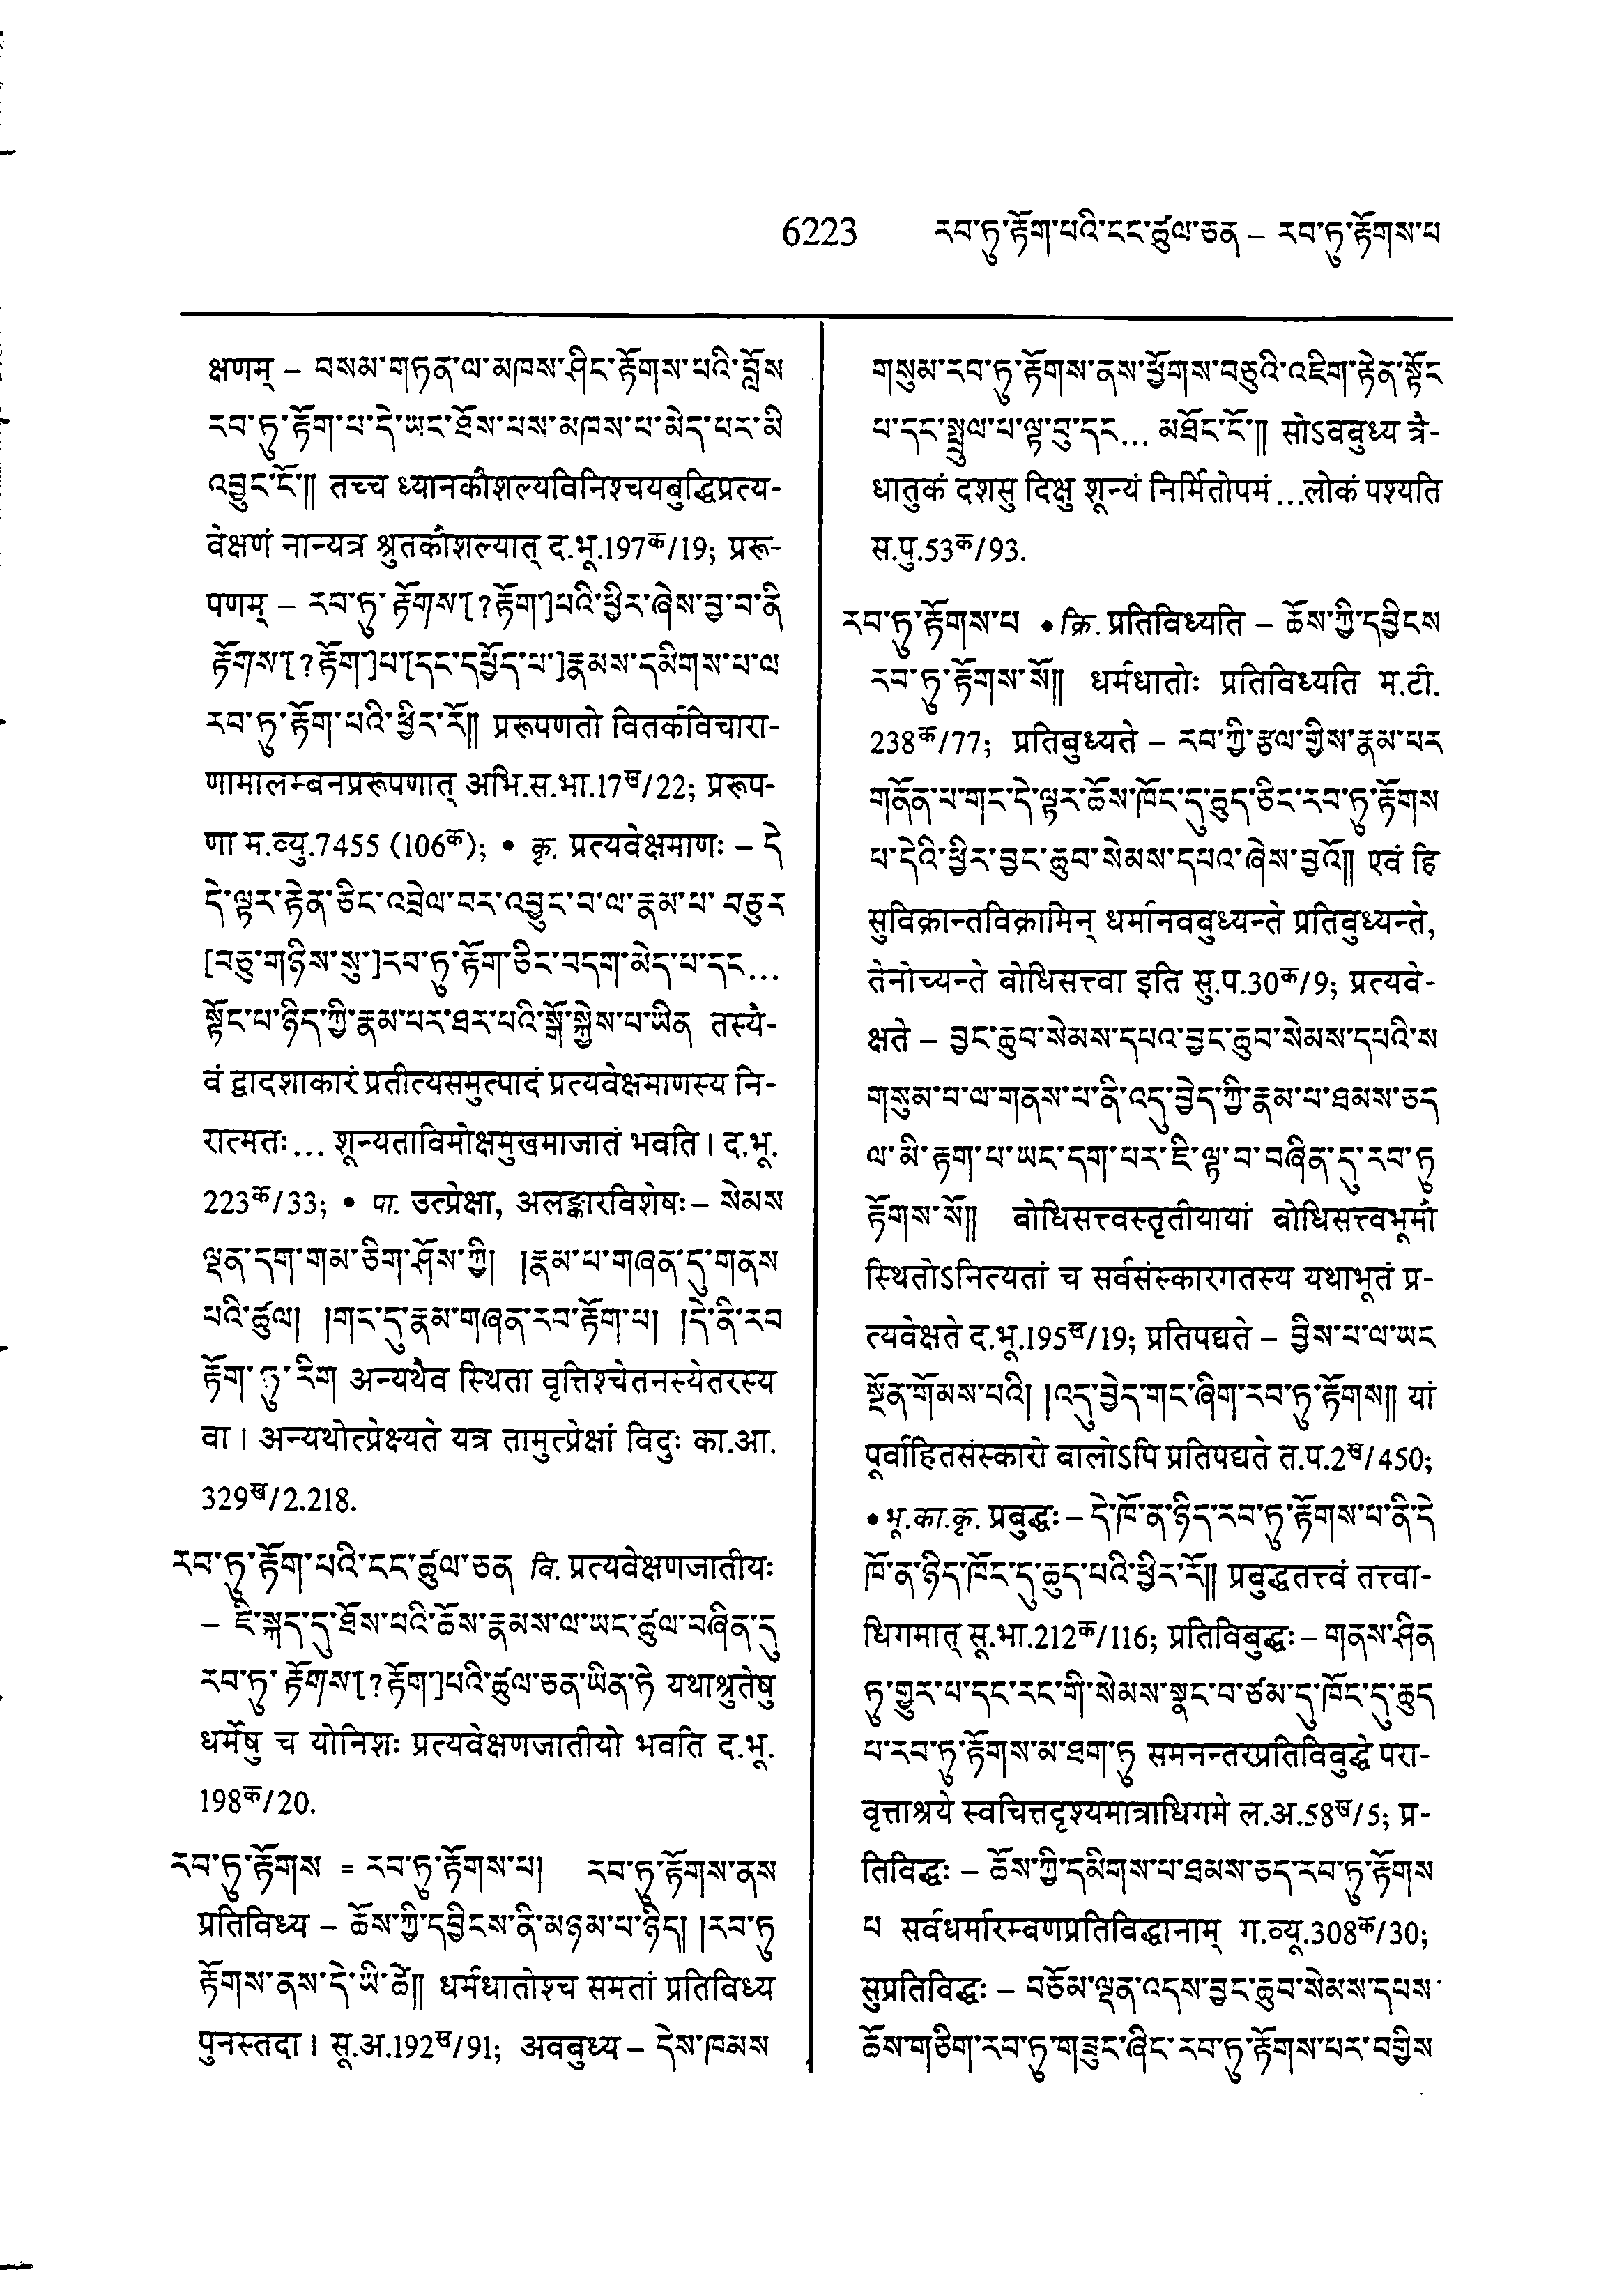 6223 རབ་ཏུ་རྟོག་པའི་ངང་ཚུལ་ཅན – རབ་ཏུ་རྟོགས་པ
क्षणम् – བསམ་གཏན་ལ་མཁས་ཤིང་རྟོགས་པའི་བློས
རབ་ཏུ་རྟོག་པ་དེ་ཡང་ཐོས་པས་མཁས་པ་མེད་པར་མི
འབྱུང་ངོ་༎ तच्च ध्यानकौशल्यविनिश्चयबुद्धिप्रत्य-
वेक्षणं नान्यत्र श्रुतकौशल्यात् द.भू.197क/19; प्ररू-
पणम् – རབ་ཏུ་ རྟོགས་[?རྟོག་]པའི་ཕྱིར་ཞེས་བྱ་བ་ནི
རྟོགས་[?རྟོག་]པ་[དང་དཔྱོད་པ་]རྣམས་དམིགས་པ་ལ
རབ་ཏུ་རྟོག་པའི་ཕྱིར་རོ༎ प्ररूपणतो वितर्कविचारा-
णामालम्बनप्ररूपणात् अभि.स.भा.17ख/22; प्ररूप-
णा म.व्यु.7455 (106क); • कृ. प्रत्यवेक्षमाणः – དེ
དེ་ལྟར་རྟེན་ཅིང་འབྲེལ་བར་འབྱུང་བ་ལ་རྣམ་པ་ བཅུར
[བཅུ་གཉིས་སུ་]རབ་ཏུ་རྟོག་ཅིང་བདག་མེད་པ་དང...
སྟོང་པ་ཉིད་ཀྱི་རྣམ་པར་ཐར་པའི་སྒོ་སྐྱེས་པ་ཡིན तस्यै-
वं द्वादशाकारं प्रतीत्यसमुत्पादं प्रत्यवेक्षमाणस्य नि-
रात्मतः... शून्यताविमोक्षमुखमाजातं भवति। द.भू.
223क/33; • पा. उत्प्रेक्षा, अलङ्कारविशेषः – སེམས
ལྡན་དག་གམ་ཅིག་ཤོས་ཀྱི། །རྣམ་པ་གཞན་དུ་གནས
པའི་ཚུལ། །གང་དུ་རྣམ་གཞན་རབ་རྟོག་པ། །དེ་ནི་རབ
རྟོག་ཏུ་རིག अन्यथैव स्थिता वृत्तिश्चेतनस्येतरस्य
वा। अन्यथोत्प्रेक्ष्यते यत्र तामुत्प्रेक्षां विदुः का.आ.
329ख/2.218.
རབ་ཏུ་རྟོག་པའི་ངང་ཚུལ་ཅན वि. प्रत्यवेक्षणजातीयः
– ཇི་སྐད་དུ་ཐོས་པའི་ཆོས་རྣམས་ལ་ཡང་ཚུལ་བཞིན་དུ
རབ་ཏུ་ རྟོགས་[?རྟོག་]པའི་ཚུལ་ཅན་ཡིན་ཏེ यथाश्रुतेषु
धर्मेषु च योनिशः प्रत्यवेक्षणजातीयो भवति द.भू.
198क/20.
རབ་ཏུ་རྟོགས = རབ་ཏུ་རྟོགས་པ། རབ་ཏུ་རྟོགས་ནས
प्रतिविध्य – ཆོས་ཀྱི་དབྱིངས་ནི་མཉམ་པ་ཉིད། །རབ་ཏུ
རྟོགས་ནས་དེ་ཡི་ཚེ༎ धर्मधातोश्च समतां प्रतिविध्य
पुनस्तदा। सू.अ.192ख/91; अवबुध्य – དེས་ཁམས
གསུམ་རབ་ཏུ་རྟོགས་ནས་ཕྱོགས་བཅུའི་འཇིག་རྟེན་སྟོང
པ་དང་སྤྲུལ་པ་ལྟ་བུ་དང... མཐོང་ངོ་༎ सोऽवबुध्य त्रै-
धातुकं दशसु दिक्षु शून्यं निर्मितोपमं...लोकं पश्यति
स.पु.53क/93.
རབ་ཏུ་རྟོགས་པ • क्रि. प्रतिविध्यति – ཆོས་ཀྱི་དབྱིངས
རབ་ཏུ་རྟོགས་སོ༎ धर्मधातोः प्रतिविध्यति म.टी.
238क/77; प्रतिबुध्यते – རབ་ཀྱི་རྩལ་གྱིས་རྣམ་པར
གནོན་པ་གང་དེ་ལྟར་ཆོས་ཁོང་དུ་ཆུད་ཅིང་རབ་ཏུ་རྟོགས
པ་དེའི་ཕྱིར་བྱང་ཆུབ་སེམས་དཔའ་ཞེས་བྱའོ༎ एवं हि
सुविक्रान्तविक्रामिन् धर्मानवबुध्यन्ते प्रतिबुध्यन्ते,
तेनोच्यन्ते बोधिसत्त्वा इति सु.प.30क/9; प्रत्यवे-
क्षते – བྱང་ཆུབ་སེམས་དཔའ་བྱང་ཆུབ་སེམས་དཔའི་ས
གསུམ་པ་ལ་གནས་པ་ནི་འདུ་བྱེད་ཀྱི་རྣམ་པ་ཐམས་ཅད
ལ་མི་རྟག་པ་ཡང་དག་པར་ཇི་ལྟ་བ་བཞིན་དུ་རབ་ཏུ
རྟོགས་སོ༎ बोधिसत्त्वस्तृतीयायां बोधिसत्त्वभूमौ
स्थितोऽनित्यतां च सर्वसंस्कारगतस्य यथाभूतं प्र-
त्यवेक्षते द.भू.195ख/19; प्रतिपद्यते – བྱིས་པ་ལ་ཡང
སྔོན་གོམས་པའི། །འདུ་བྱེད་གང་ཞིག་རབ་ཏུ་རྟོགས༎ यां
पूर्वाहितसंस्कारो बालोऽपि प्रतिपद्यते त.प.2ख/450;
• भू.का.कृ. प्रबुद्धः – དེ་ཁོ་ན་ཉིད་རབ་ཏུ་རྟོགས་པ་ནི་དེ
ཁོ་ན་ཉིད་ཁོང་དུ་ཆུད་པའི་ཕྱིར་རོ༎ प्रबुद्धतत्त्वं तत्त्वा-
धिगमात् सू.भा.212क/116; प्रतिविबुद्धः – གནས་ཤིན
ཏུ་གྱུར་པ་དང་རང་གི་སེམས་སྣང་བ་ཙམ་དུ་ཁོང་དུ་ཆུད
པ་རབ་ཏུ་རྟོགས་མ་ཐག་ཏུ समनन्तरप्रतिविबुद्धे परा-
वृत्ताश्रये स्वचित्तदृश्यमात्राधिगमे ल.अ.58ख/5; प्र-
तिविद्धः – ཆོས་ཀྱི་དམིགས་པ་ཐམས་ཅད་རབ་ཏུ་རྟོགས
པ सर्वधर्मारम्बणप्रतिविद्धानाम् ग.व्यू.308क/30;
सुप्रतिविद्धः – བཅོམ་ལྡན་འདས་བྱང་ཆུབ་སེམས་དཔས
ཆོས་གཅིག་རབ་ཏུ་གཟུང་ཞིང་རབ་ཏུ་རྟོགས་པར་བགྱིས